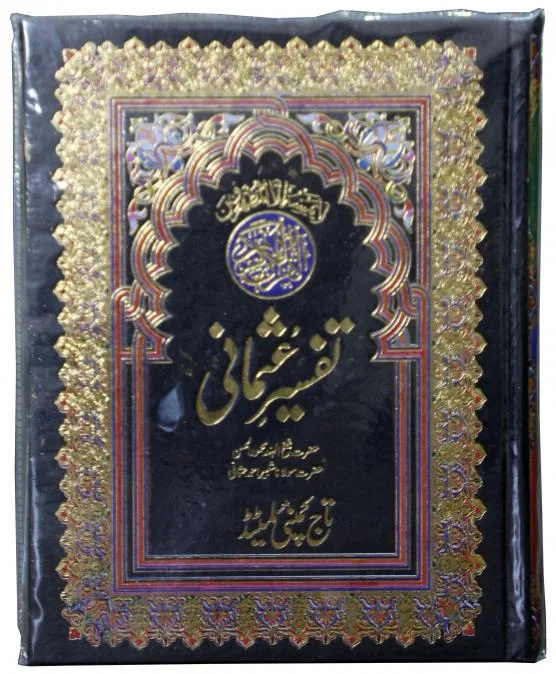 لا يمسه الا المطهرون
القرآن الكريم
تفسیر عثمانی
حضرت شیخ الہند محمود الحسن
حضرت مولانا شبیر احمد عثمانی
تاج کمپنی لمیٹڈ